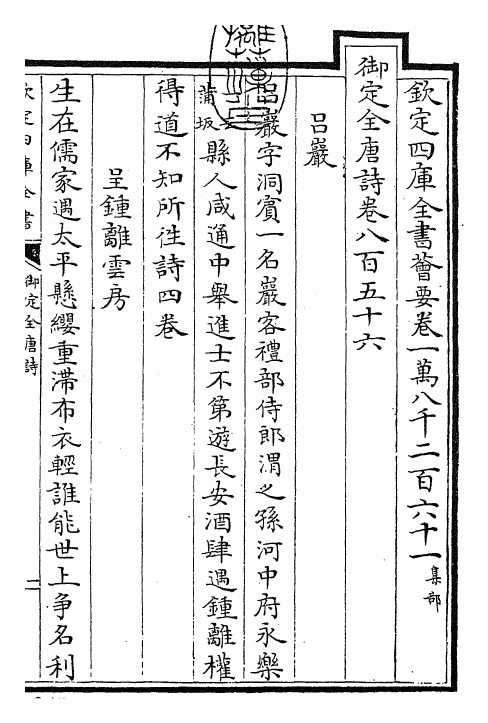 欽定四庫全書薈要卷一萬八千二百六十一 集部
御定全唐詩卷八百五十六
呂巖
呂巖字洞賓一名巖客禮部侍郎渭之孫河中府永樂
縣人咸通中舉進士不第遊長安酒肆遇鍾離權
得道不知所往詩四卷
呈鍾離雲房
生在儒家遇太平懸纓重滯布衣輕誰能世上爭名利
欽定四庫全書
御定全唐詩